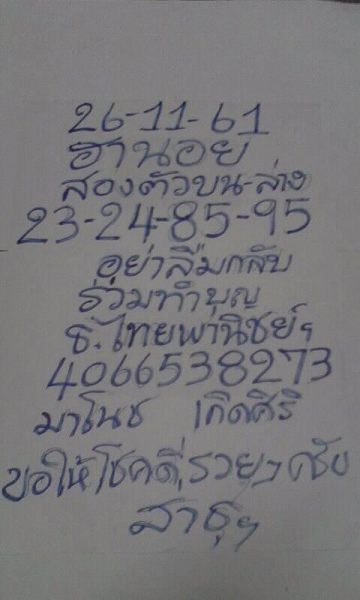 26-11-61
ฮานอย
สองตัวบน-ล่าง
23-24-85-95
อย่าลืมกลับ
ร่วมทำบุญ
ธ.ไทยพานิชย์ฯ
4066538273
มาโนช เกิดศิริ
ขอให้โชคดี,รวยๆครับ
สาธุๆ